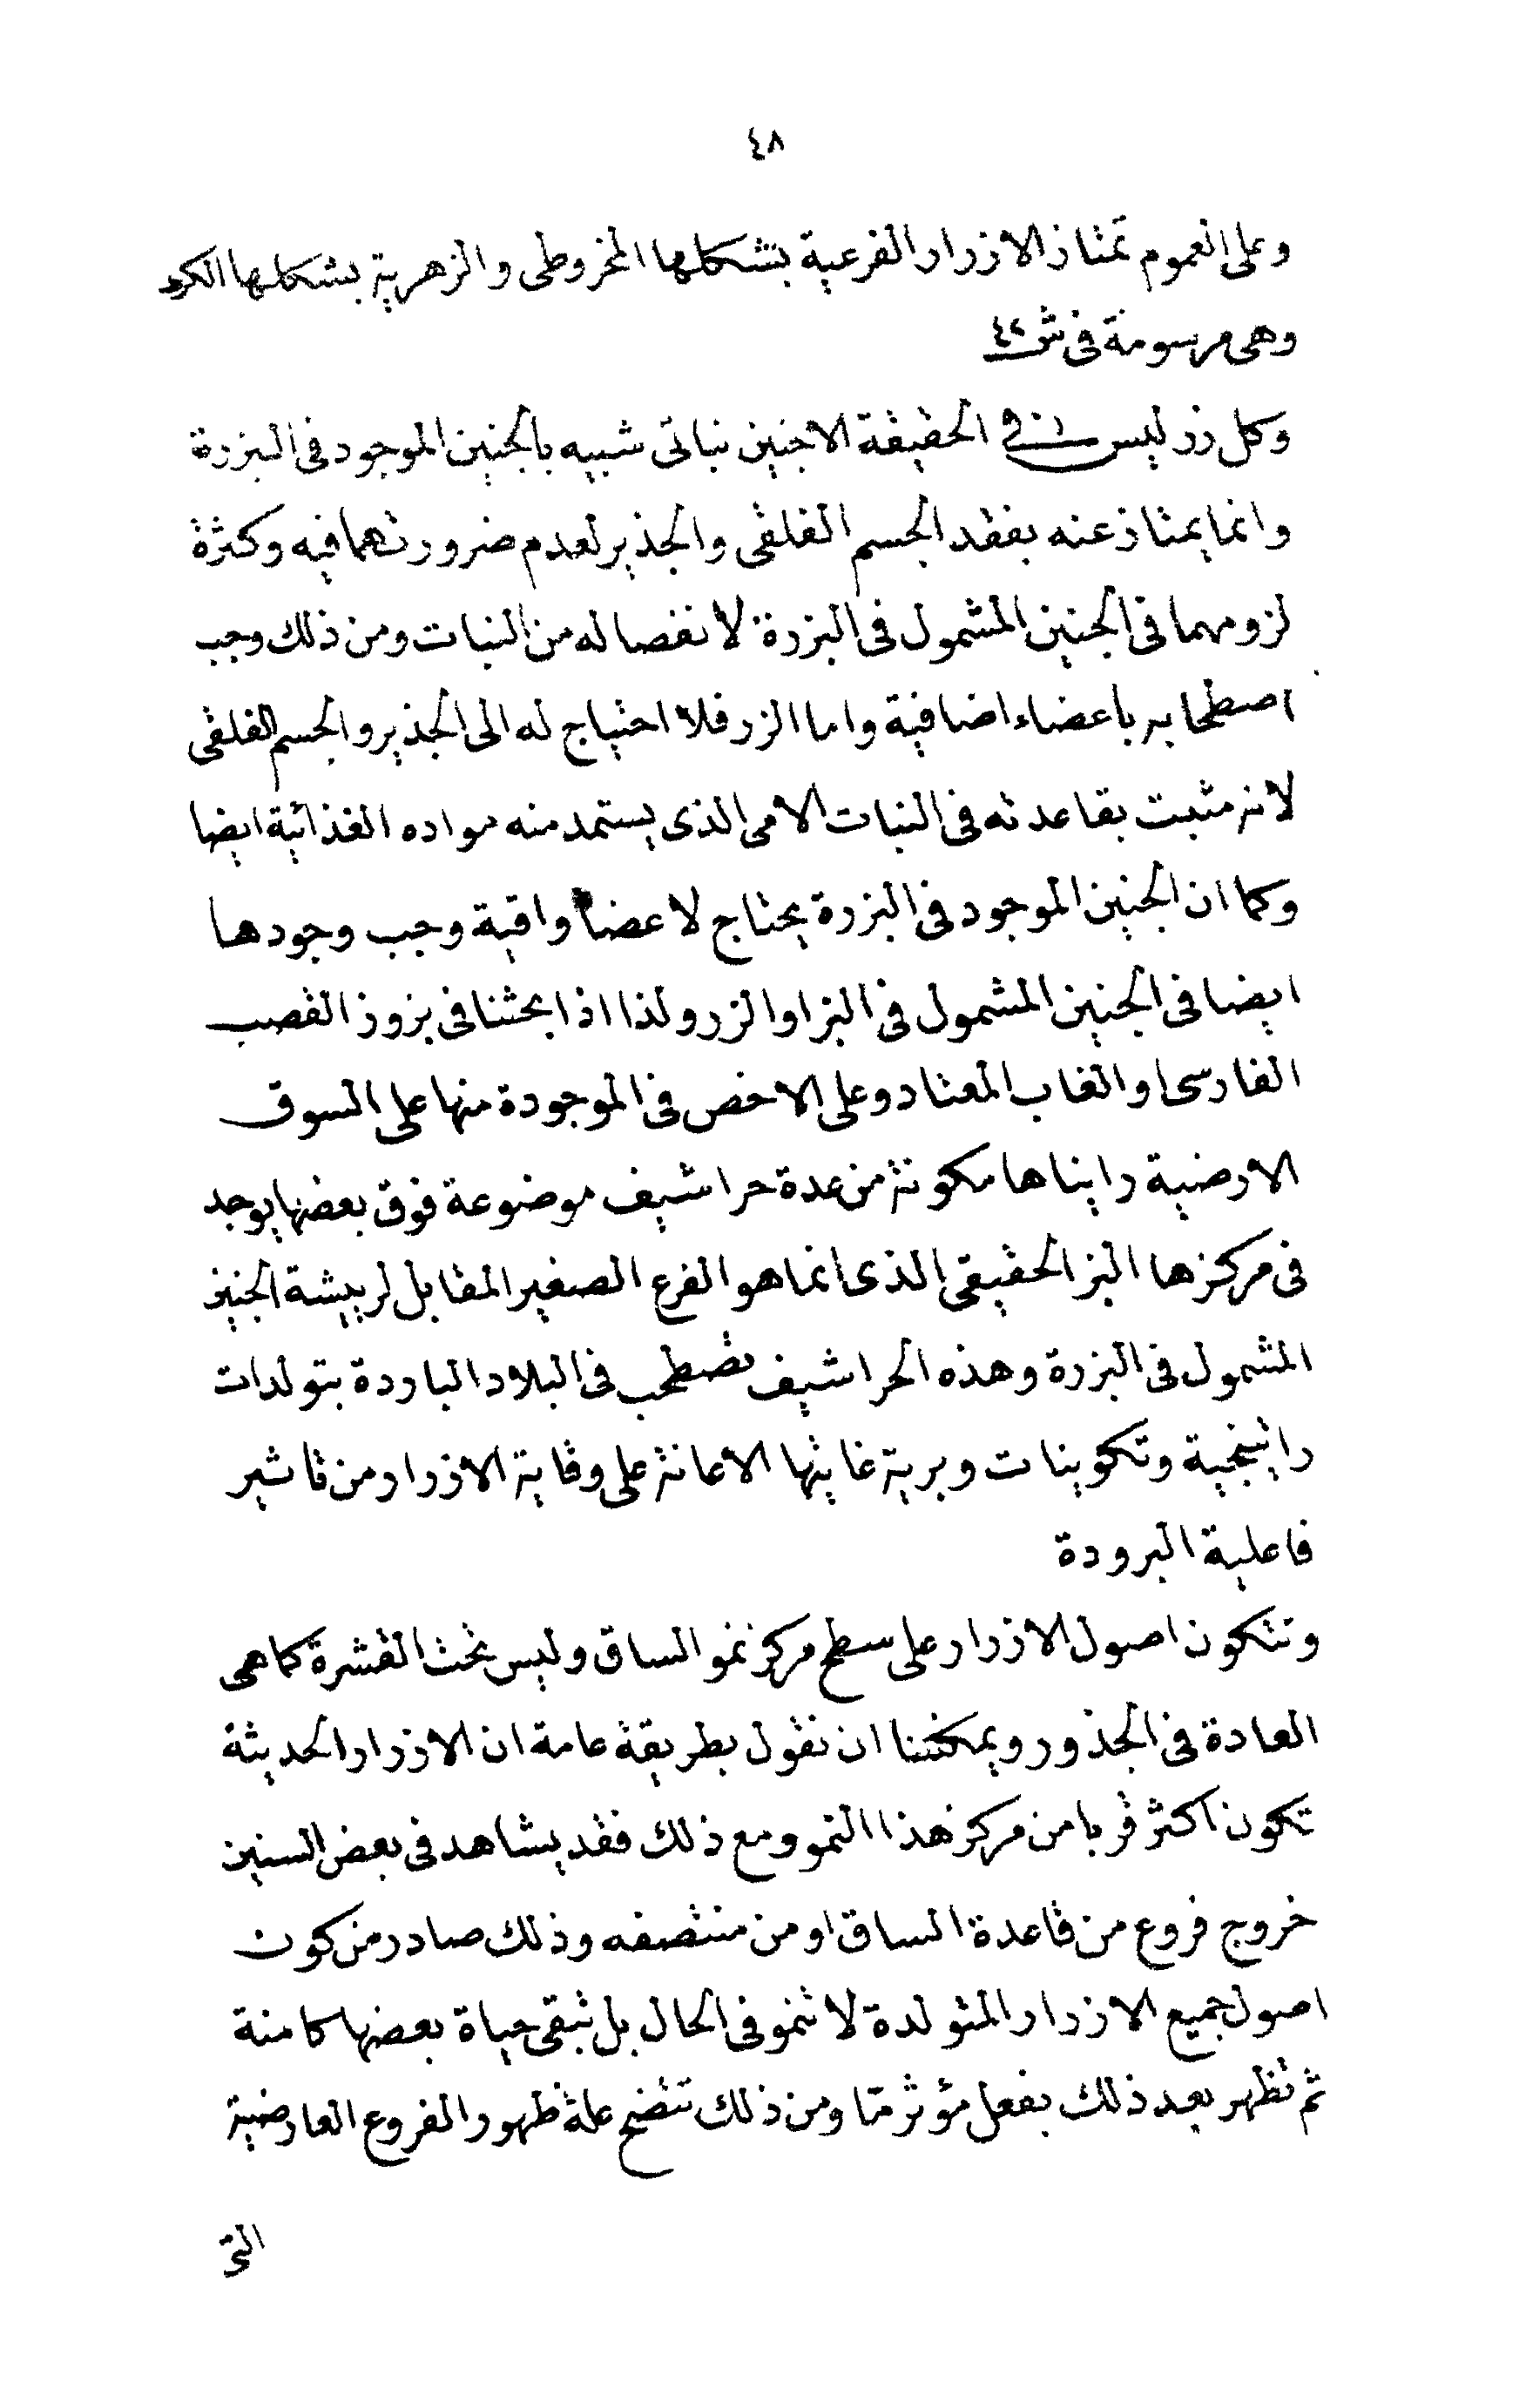 ٤٨
وعلى العموم تمتاز الازرار الفرعية بتشكلها المخروطى والزهرية بشكلها الكرى
وهى مرسومة فى ش ٤٢
وكل زر ليس فى الحقيقة الاجنين نباتى شبيه بالجنين الموجود فى البزرة
وانما يمتاز عنه بفقد الجسم الفلقى والجذير لعدم ضرورتهما فيه وكثرة
لزومهما فى الجنين المشمول فى البزرة لانفصاله من النبات ومن ذلك وجب
اصطحابه باعضاء اضافية واما الزر فلا احتياج له الى الجذير والجسم الفلقى
لانه مثبت بقاعدته فى النبات الامى الذى يستمد منه مواده الغذائية ايضا
وكما ان الجنين الموجود فى البزرة يحتاج لاعضا واقية وجب وجودها
ايضا فى الجنين المشمول فى البزاوالزر ولذا اذا بحثنا فى بزوز القصب
الفارسى او الغاب المعتاد وعلى الاخص فى الموجودة منها على السوق
الارضية رايناها مكونة من عدة حراشيف موضوعة فوق بعضها يوجد
فى مركزها البز الحقيقى الذى انما هو الفرع الصغير المقابل لريشة الجنين
المشمول فى البزرة وهذه الحراشيف تصطحب فى البلاد الباردة بتولدات
راتينجية وتكوينات وبرية غايتها الاعانة على وقاية الازرار من تاثير
فاعلية البرودة
وتتكون اصول الازرار على سطح مركز نمو الساق وليس تحت القشرة كما هى
العادة فى الجذور ويمكننا ان نقول بطريقة عامة ان الازرار الحديثة
تكون اكثر قربا من مركز هذا النمو ومع ذلك فقد يشاهد فى بعض السنين
خروج فروع من قاعدة الساق او من منتصفه وذلك صادر من كون
اصول جميع الازرار المتولدة لا تنمو فى الحال بل تبقى حياة بعضها كامنة
ثم تظهر بعد ذلك بفعل مؤثر مّا ومن ذلك تتضح علة ظهور الفروع العارضية
التى